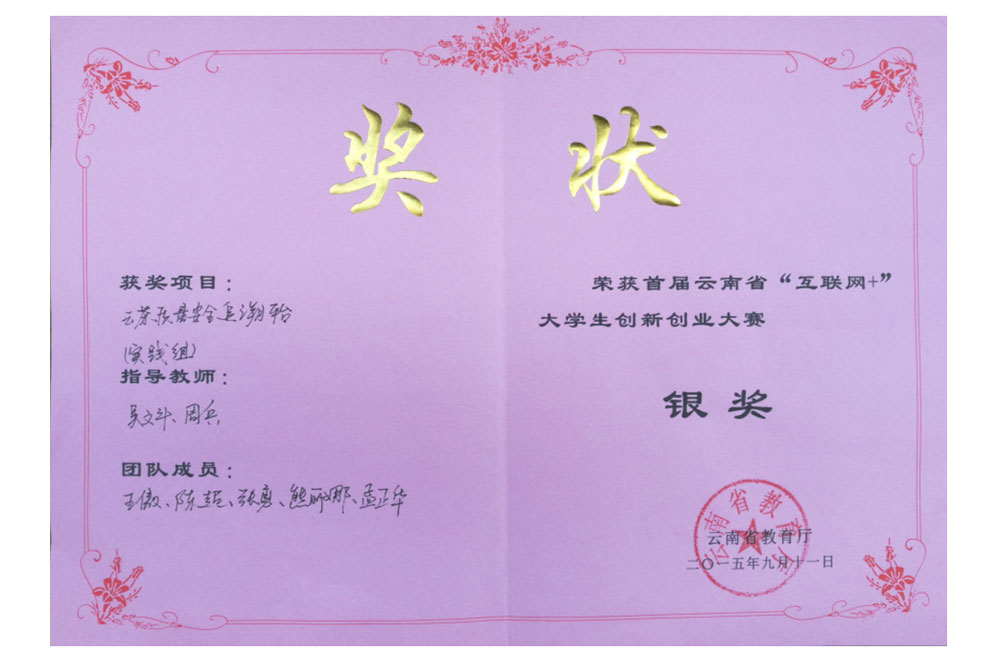 奖 状
获奖项目：
(实践组)
指导教师：
吴文斗、周兵
团队成员：
王傲、陈超、张勇、熊丽娜、孟正华
荣获首届云南省“互联网+”
大学生创新创业大赛
银奖
云南省教育厅
云南省教育厅
二〇一五年九月十一日